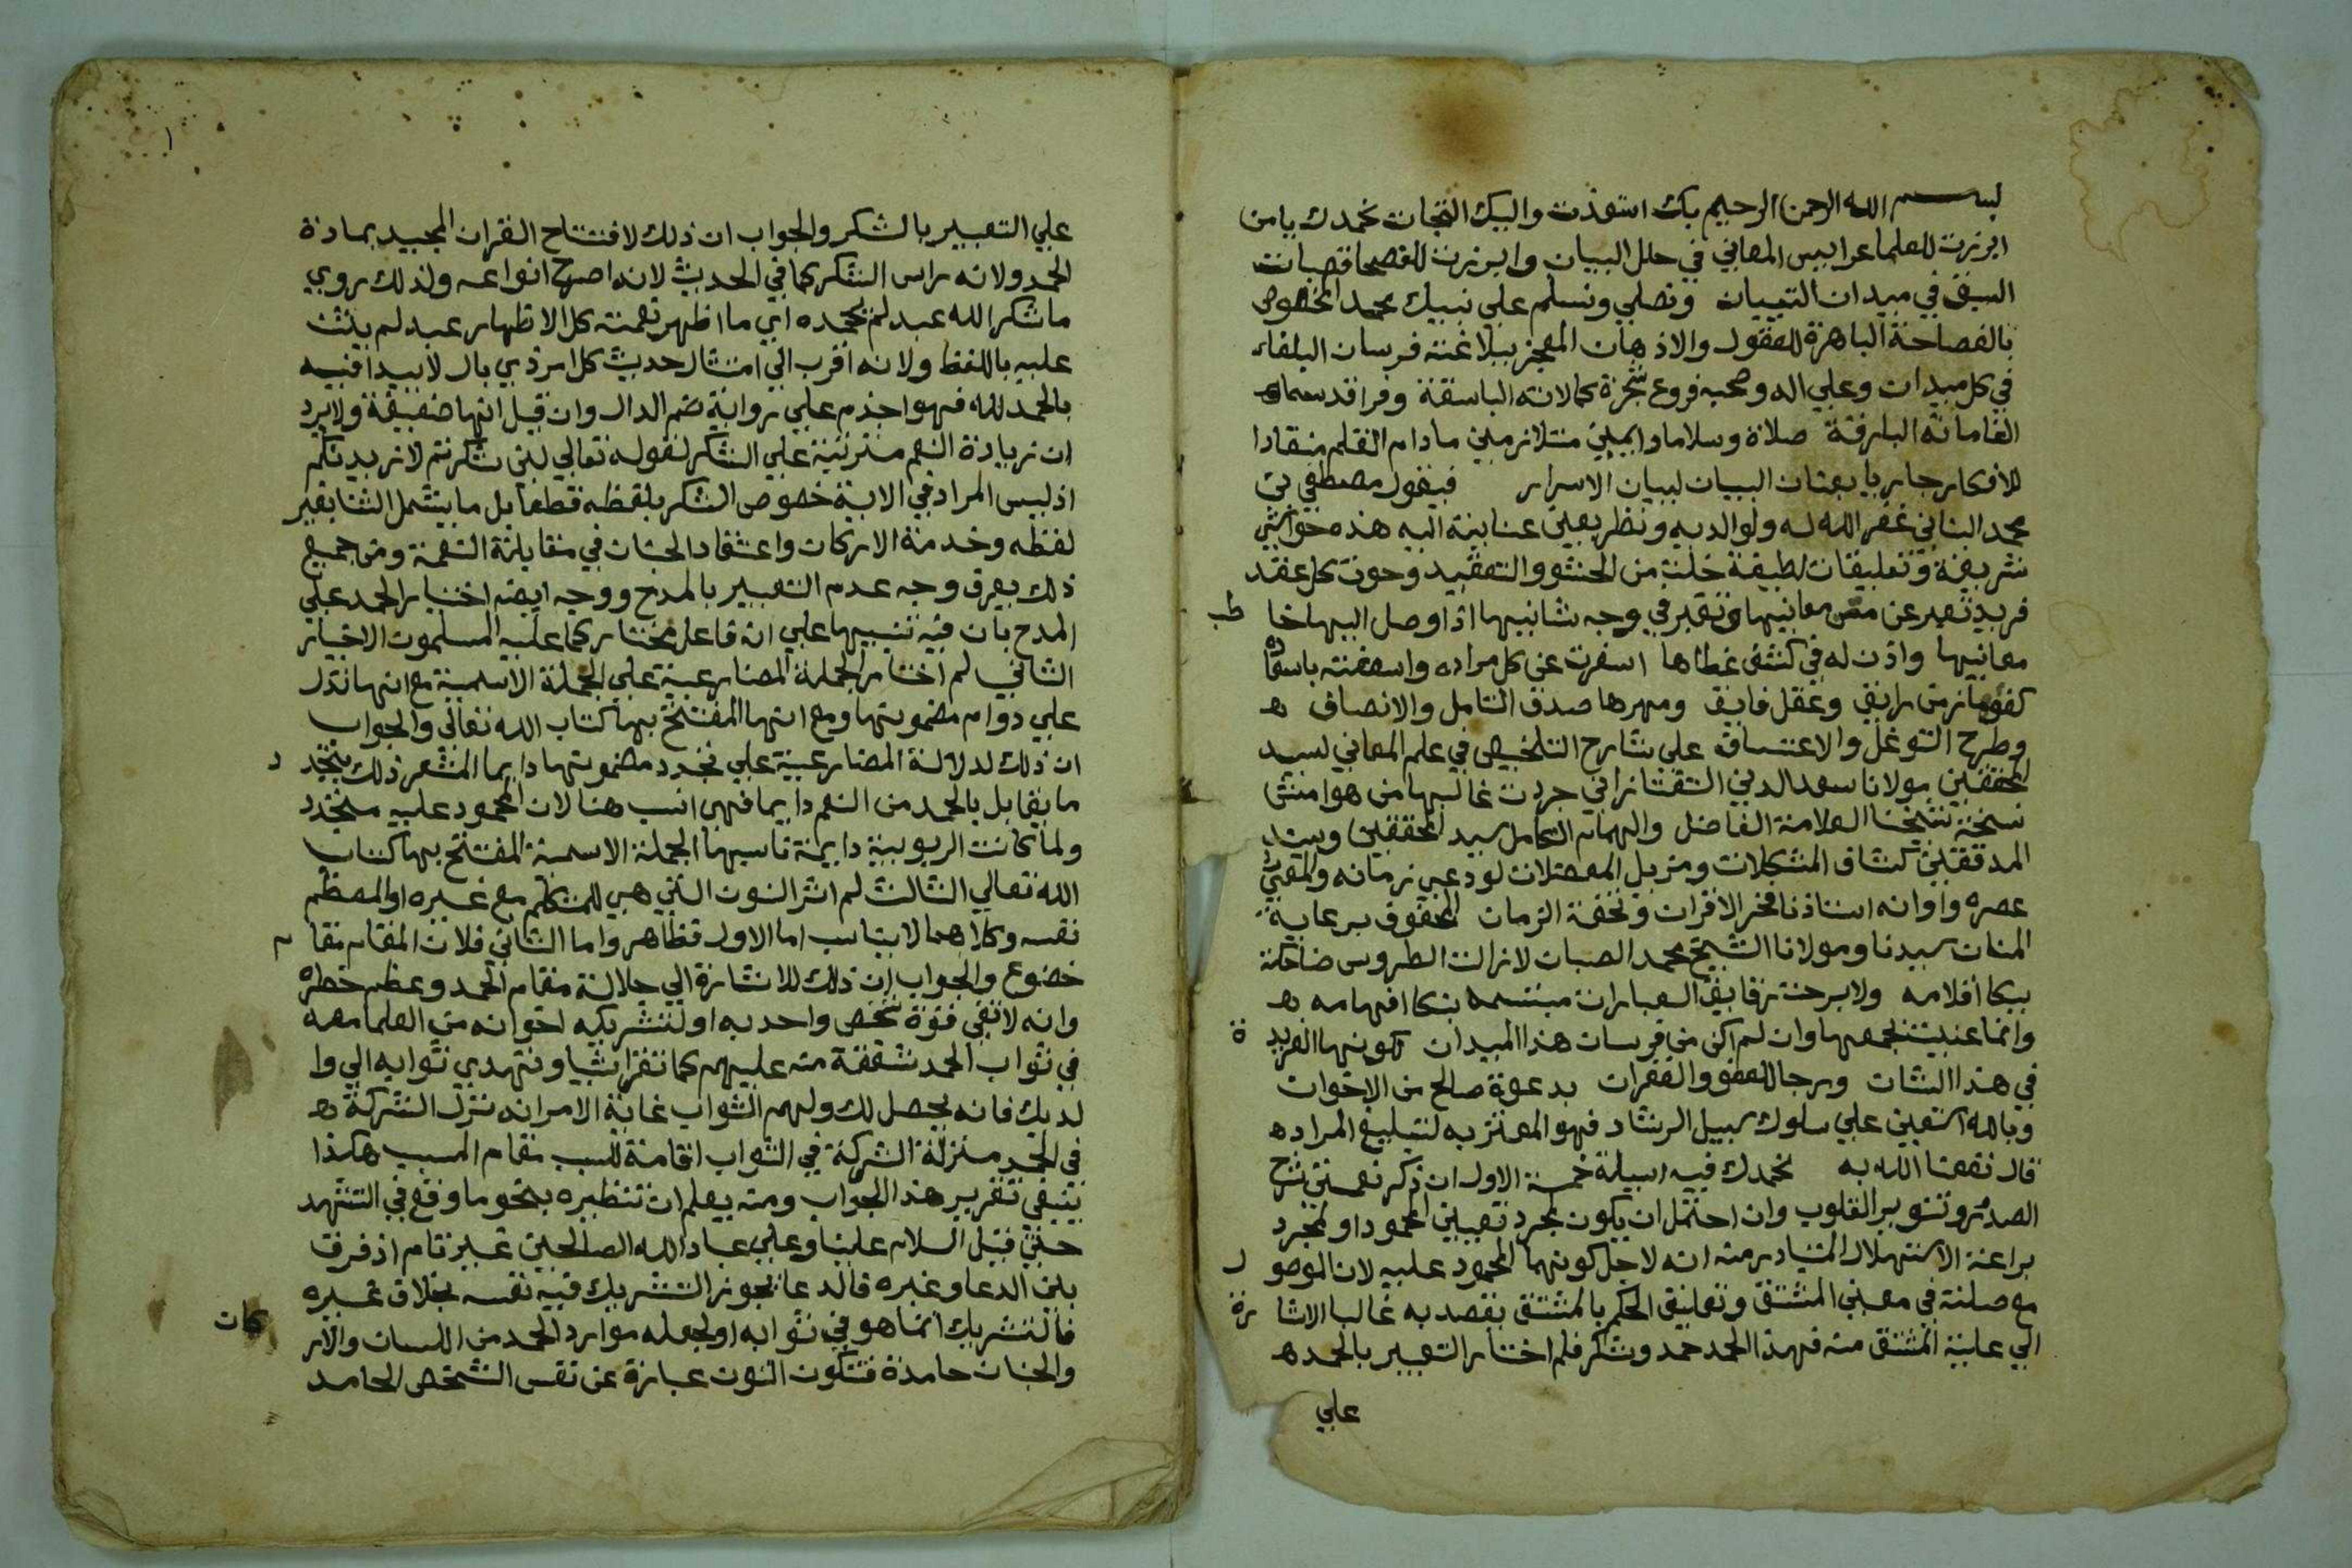 بسم الله الرحمن الرحيم بك استعذت واليك التجات نحمدك يا من
ابرزت للعلما عرايس المعاني في حلل البيان وابرزت للفصحا قصبات
السبق في ميدان التبيان ونصلي ونسلم علي نبيك محمد المخصوص
بالفصاحة الباهرة للعقول والاذهان المعجز ببلاغته فرسان البلغاء
في كل ميدان وعلي اله وصحبه فروع شجرة كمالاته الباسقة وفراقد سماء
انعاماته البارقة صلاة وسلاما دايمين متلازمين مادام القلم منقادا
للافكار جاريا بعنان البيان لبيان الاسرار فيقول مصطفي بن
محمد البناني غفر الله له ولوالديه ونظر بعين عنايته اليه هذه حواشي
شريفة وتعليقات لطيفة خلت من الحشو والتعقيد وحوت كل عقد
فريد تعبر عن معانيها وتقبر في وجه شانيها اذا وصل اليها خاطب
معانيها واذن له في كشف غطاها اسفرت عن كل مراده واسعفته باسعاده
كفوها زمن رايق وعقل فايق ومهرها صدق التامل والانصاف
وطرح التوغل والاعتساف علي شارح التلخيص في علم المعاني لسيد
المحققين مولانا سعد الدين التفتازاني جردت غالبها من هوامش
نسخة شيخنا العلامة الفاضل والهمام الكامل سيد المحققين وسند
المدققين كشاف المشكلات ومزيل المعضلات لوذعي زمانه والمعي
عصره واوانه استاذنا فخر الاقران وتحفة الزمان المحفوف برعاية
المنان سيدنا ومولانا الشيخ محمد الصبان لازالت الطروس ضاحكة
ببكا اقلامه ولا برحت رقايق العبارات مبتسمة بذكا افهامه
وانما عنيت بجمعها وان لم اكن من فرسان هذا الميدان لكونها الفريدة
في هذا الشان ورجا للعفو والغفران بدعوة صالح من الاخوان
وبالله استعين علي سلوك سبيل الرشاد فهو المعتز به لتبليغ المراد
قال نفعنا الله به نحمدك فيه اسيلة خمسة الاول ان ذكر نعمتي شرح
الصدر وتنوير القلوب وان احتمل ان يكون لمجرد تعيين المحمود او لمجرد
براعة الاستهلال المتبادر منه انه لاجل كونهما المحمود عليه لان الموصول
مع صلته في معني المشتق وتعليق الحكم بالمشتق يقصد به غالبا الاشارة
الي علية المشتق منه فهذا الحمد حمد وشكر فلم اختار التعبير بالحمد
علي
علي التعبير بالشكر والجواب ان ذلك لافتتاح القران المجيد بمادة
الحمد ولانه راس الشكر كما في الحديث لانه اصرح انواعه ولذلك روي
ما شكر الله عبد لم يحمده اي ما اظهر نعمته كل الاظهار عبد لم يثن
عليه باللفظ ولانه اقرب الي امتثال حديث كل امر ذي بال لا يبدا فيه
بالحمد لله فهو اجذم علي رواية ضم الدال وان قيل انها ضعيفة ولا يرد
ان زيادة النعم مترتبة علي الشكر لقوله تعالي لئن شكرتم لازيدنكم
اذ ليس المراد في الاية خصوص الشكر بلفظه قطعا بل ما يشمل الثنا بغير
لفظه وخدمة الاركان واعتقاد الجنان في مقابلة النعمة ومن جميع
ذلك يعرف وجه عدم التعبير بالمدح ووجه ايضا اختيار الحمد علي
المدح بان فيه تنبيها علي انه فاعل مختار كما عليه المسلمون الاخيار
الثاني لم اختار الجملة المضارعية علي الجملة الاسمية مع انها تدل
علي دوام مضمونها ومع انها المفتتح بها كتاب الله تعالي والجواب
ان ذلك لدلالة المضارعية علي تجدد مضمونها دايما المشعر ذلك بتجدد
ما يقابل بالحمد من النعم دايما فهي انسب هنا لان المحمود عليه متجدد
ولما كانت الربوبية دايمة ناسبها الجملة الاسمية المفتتح بها كتاب
الله تعالي الثالث لم اثر النون التي هي للمتكلم مع غيره او المعظم
نفسه وكلاهما لا يناسب اما الاول فظاهر واما الثاني فلان المقام مقام
خضوع والجواب ان ذلك للاشارة الي جلالة مقام الحمد وعظم خطره
وانه لا تفي قوة شخص واحد به او لتشريكه اخوانه من العلما معه
في ثواب الحمد شفقة منه عليهم كما تقرا شيا وتهدي ثوابه الي وا
لديك فانه يحصل لك ولهم الثواب غاية الامر انه نزل الشركة
في الحمد منزلة الشركة في الثواب اقامة للسبب مقام المسبب هكذا
ينبغي تقرير هذا الجواب ومنه يعلم ان تنظيره بنحو ما وقع في التشهد
حتي قيل السلام علينا وعلي عباد الله الصالحين غير تام اذ فرق
بين الدعا وغيره فالدعا يجوز التشريك فيه نفسه بخلاف غيره
فالتشريك انما هو في ثوابه او لجعله موارد الحمد من اللسان والاركان
والجنان حامدة فتكون النون عبارة عن نفس الشخص الحامد